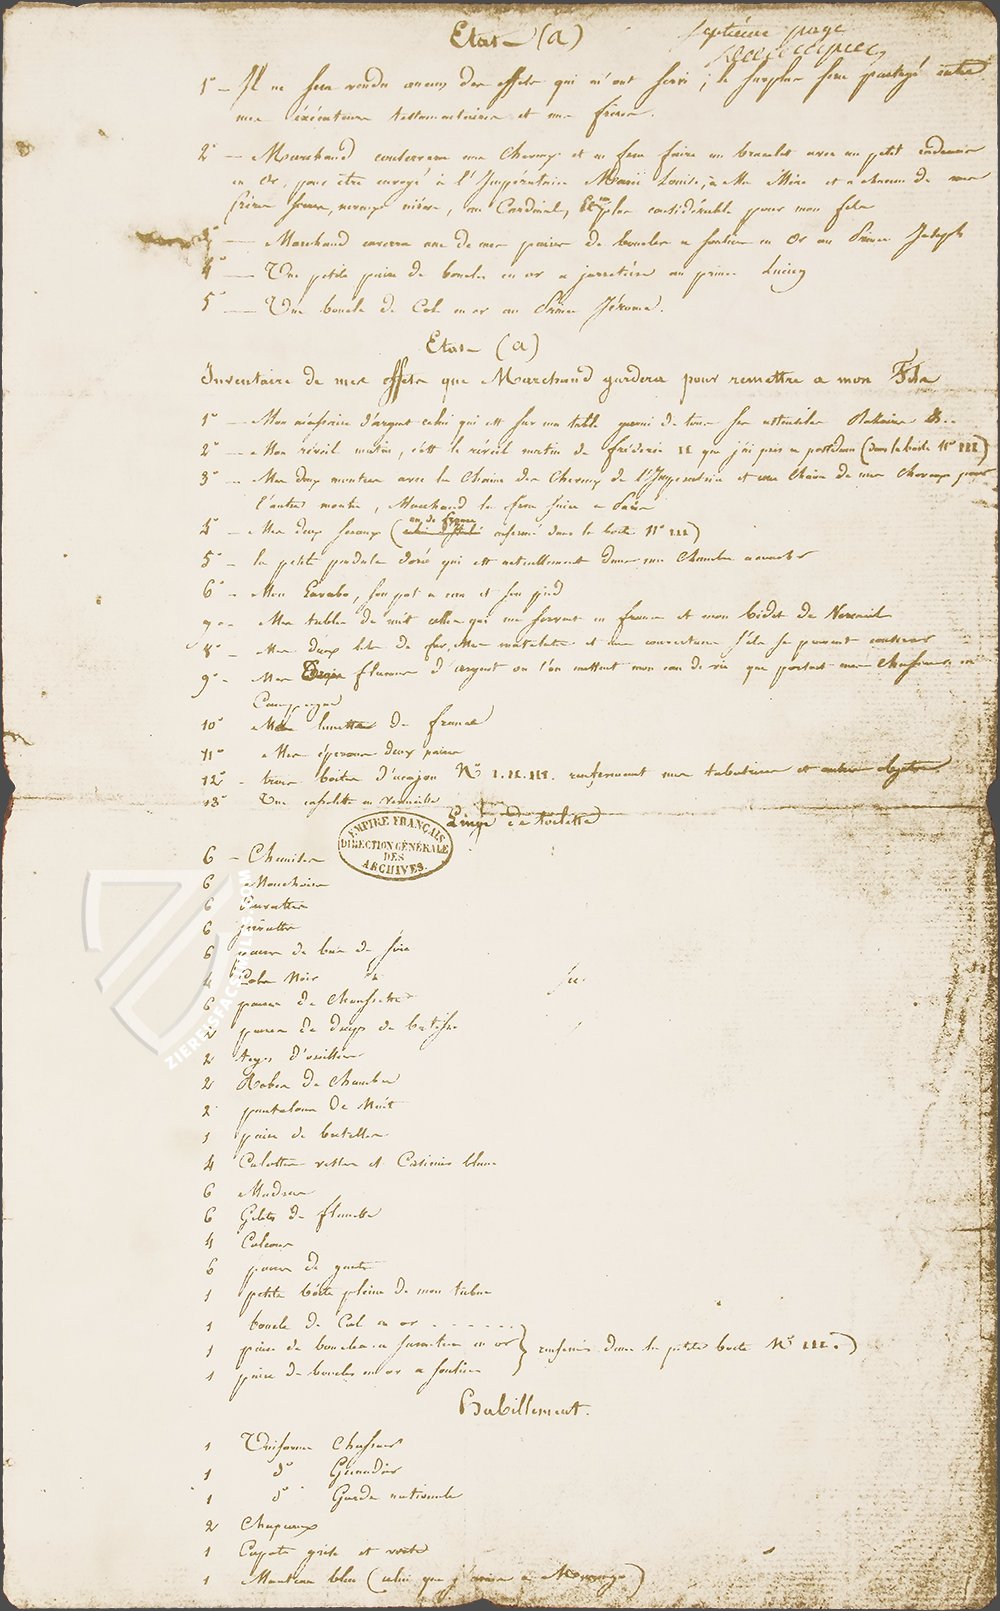 Etat (a)
septième page
1° Il ne sera vendu aucun des effets qui m'ont servi ; le surplus sera partagé entre
mes exécuteurs testamentaires et mes frères.
2° Marchand conservera mes cheveux et en fera faire un bracelet avec un petit cadenas
en or, pour être envoyé à l'Impératrice Marie Louise, à Ma Mère et à chacun de mes
frères, soeurs, neveux, nièces, au Cardinal, et un plus considérable pour mon fils
3° Marchand enverra une de mes paires de boucles à soulier en or au Prince Joseph
4° Une petite paire de boucles en or à jarretière au prince Lucien
5° Une boucle de Col en or au Prince Jérôme.
Etat (a)
Inventaire de mes effets que Marchand gardera pour remettre à mon Fils
1° Mon nécessaire d'argent celui qui est sur ma table garni de tous ses ustensiles Razoirs &..
2° Mon réveil matin, c'est le réveil matin de Fréderic II que j'ai pris à postdam (dans la boîte N° III)
3° Mes deux montres avec la Chaine des Cheveux de l'Impératrice et une Chaine de mes Cheveux pour
l'autre montre, Marchand la fera faire à Paris
4° Mes deux sceaux (un de France enfermé dans la boite N° III)
5° la petite pendule dorée qui est actuellement dans ma Chambre à coucher
6° Mon Lavabo, son pot à eau et son pied
7° Mes tables de nuit celles qui me servent en france et mon bidet de Vermeil
8° Mes deux lits de fer, Mes matelats et mes couvertures s'ils se peuvent conserver
9° Mes flacons d'argent où l'on mettait mon eau de vie que portaient mes Chasseurs en
Campagne
10° Ma lunette de France
11° Mes éperons deux paires
12° trois boîtes d'acajou N° I. II. III. renfermant mes tabatières et autres objets.
13° Une cassolette en Vermeille
Linge de toilette
EMPIRE FRANÇAIS
DIRECTION GÉNÉRALE
DES
ARCHIVES.
6 Chemises
6 Mouchoirs
6 Cravattes
6 Serviettes
6 paires de bas de soie
4 Cols Noir
6 paires de Chaussettes
2 paires de draps de batiste
2 tayes d'oreillers
2 Robes de Chambre
2 pantalons de Nuit
1 paire de bretelles
4 Culottes vestes et Casimir blanc
6 Madras
6 Gilets de flanelle
4 Calecons
6 paires de guetres
1 petite boîte pleine de mon tabac
1 boucle de Col en or
1 paire de boucles à jarretières en or } renfermés dans la petite boite N° III.)
1 paire de boucles en or à souliers
Habillement.
1 Uniforme Chasseur
1 d° Grenadier
1 d° Garde nationale
2 Chapeaux
1 Capote grise et verte
1 Manteau bleu (celui que j'avais à Marengo)
ZIEREISFACSIMILES.COM